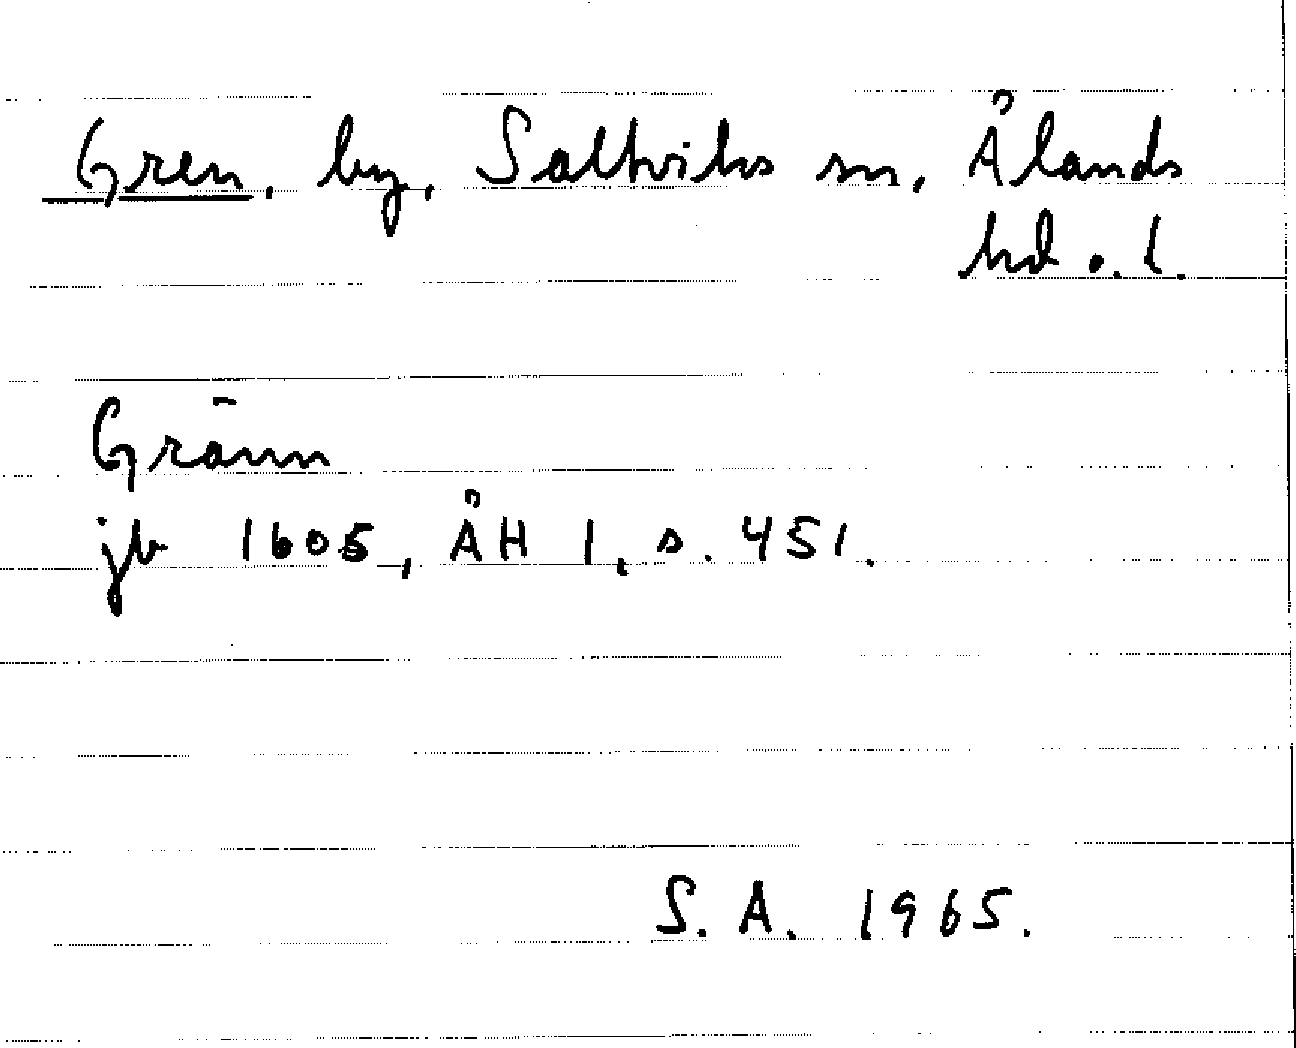 Gren, by, Saltviks sn, Ålands
hd o. l.
Gränn
jb 1605, ÅH 1, s. 451.
S. A. 1965.